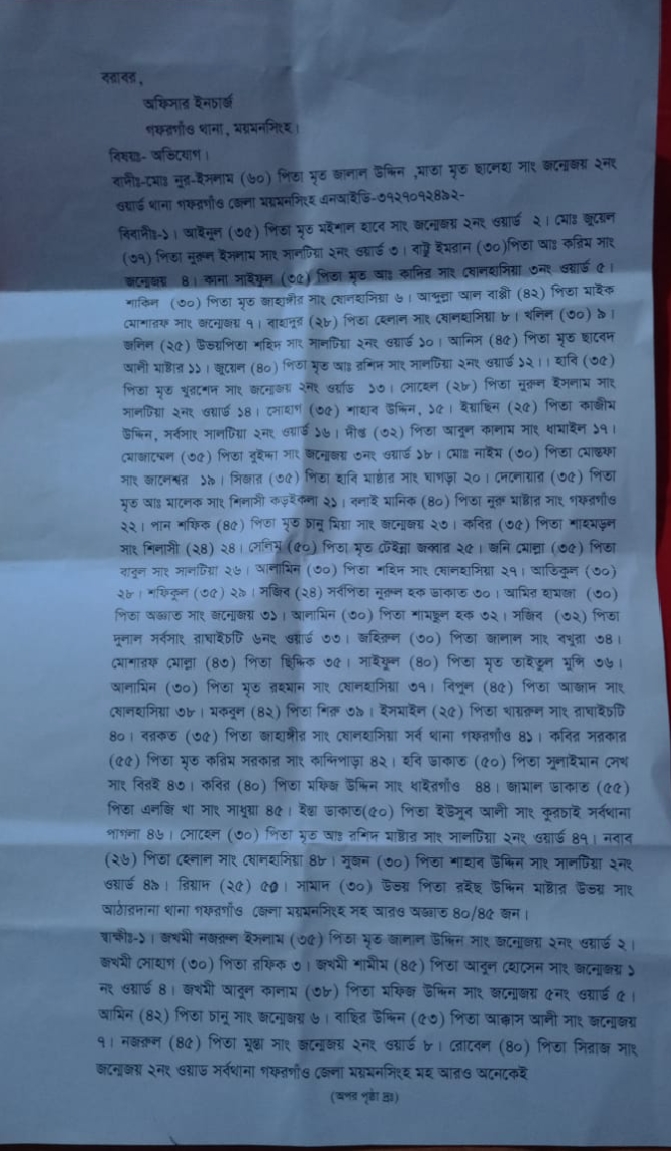 বরাবর,
অফিসার ইনচার্জ
গফরগাঁও থানা, ময়মনসিংহ।
বিষয়ঃ- অভিযোগ।
বাদীঃ-মোঃ নুর-ইসলাম (৬০) পিতা মৃত জালাল উদ্দিন ,মাতা মৃত ছালেহা সাং জন্মেজয় ২নং
ওয়ার্ড থানা গফরগাঁও জেলা ময়মনসিংহ এনআইডি-৩৭২৭০৭২৪৯২-
বিবাদীঃ-১। আইনুল (৩৫) পিতা মৃত মইশাল হাবে সাং জন্মেজয় ২নং ওয়ার্ড ২। মোঃ জুয়েল
(৩৭) পিতা নুরুল ইসলাম সাং সালটিয়া ২নং ওয়ার্ড ৩। বাট্টু ইমরান (৩০)পিতা আঃ করিম সাং
জন্মেজয় ৪। কানা সাইফুল (৩৫) পিতা মৃত আঃ কাদির সাং ষোলহাসিয়া ৩নং ওয়ার্ড ৫।
শাকিল (৩০) পিতা মৃত জাহাঙ্গীর সাং ষোলহাসিয়া ৬। আব্দুল্লা আল বাপ্পী (৪২) পিতা মাইক
মোশারফ সাং জন্মেজয় ৭। বাহাদুর (২৮) পিতা হেলাল সাং ষোলহাসিয়া ৮। খলিল (৩০) ৯।
জলিল (২৫) উভয়পিতা শহিদ সাং সালটিয়া ২নং ওয়ার্ড ১০। আনিস (৪৫) পিতা মৃত ছাবেদ
আলী মাষ্টার ১১। জুয়েল (৪০) পিতা মৃত আঃ রশিদ সাং সালটিয়া ২নং ওয়ার্ড ১২।। হাবি (৩৫)
পিতা মৃত খুরশেদ সাং জন্মেজয় ২নং ওর্য়াড ১৩। সোহেল (২৮) পিতা নুরুল ইসলাম সাং
সালটিয়া ২নং ওয়ার্ড ১৪। সোহাগ (৩৫) শাহাব উদ্দিন, ১৫। ইয়াছিন (২৫) পিতা কাজীম
উদ্দিন, সর্বসাং সালটিয়া ২নং ওয়ার্ড ১৬। দীপ্ত (৩২) পিতা আবুল কালাম সাং ধামাইল ১৭।
মোজাম্মেল (৩৫) পিতা বুইদ্দা সাং জন্মেজয় ৩নং ওয়ার্ড ১৮। মোঃ নাইম (৩০) পিতা মোস্তফা
সাং জালেশ্বর ১৯। মিজার (৩৫) পিতা হাবি মাষ্টার সাং ঘাগড়া ২০। দেলোয়ার (৩৫) পিতা
মৃত আঃ মালেক সাং শিলাসী কড়ইকলা ২১। বলাই মানিক (৪০) পিতা নুরু মাষ্টার সাং গফরগাঁও
২২। পান শফিক (৪৫) পিতা মৃত চানু মিয়া সাং জন্মেজয় ২৩। কবির (৩৫) পিতা শাহমন্ডল
সাং শিলাসী (২৪) ২৪। সেলিম (৫০) পিতা মৃত টেইন্না জব্বার ২৫। জনি মোল্লা (৩৫) পিতা
বাবুল সাং সালটিয়া ২৬। আলামিন (৩০) পিতা শহিদ সাং ষোলহাসিয়া ২৭। আতিকুল (৩০)
২৮। শফিকুল (৩৫) ২৯। সজিব (২৪) সর্বপিতা নুরুল হক ডাকাত ৩০। আমির হামজা (৩০)
পিতা অজ্ঞাত সাং জন্মেজয় ৩১। আলামিন (৩০) পিতা শামছুল হক ৩২। সজিব (৩২) পিতা
দুলাল সর্বসাং রাঘাইচটি ৬নং ওয়ার্ড ৩৩। জহিরুল (৩০) পিতা জালাল সাং বখুরা ৩৪।
মোশারফ মোল্লা (৪৩) পিতা ছিদ্দিক ৩৫। সাইফুল (৪০) পিতা মৃত তাইতুল মুন্সি ৩৬।
আলামিন (৩০) পিতা মৃত রহমান সাং ষোলহাসিয়া ৩৭। বিপুল (৪৫) পিতা আজাদ সাং
ষোলহাসিয়া ৩৮। মকবুল (৪২) পিতা শিরু ৩৯। ইসমাইল (২৫) পিতা খায়রুল সাং রাঘাইচটি
৪০। বরকত (৩৫) পিতা জাহাঙ্গীর সাং ষোলহাসিয়া সর্ব থানা গফরগাঁও ৪১। কবির সরকার
(৫৫) পিতা মৃত করিম সরকার সাং কান্দিপাড়া ৪২। হবি ডাকাত (৫০) পিতা সুলাইমান সেখ
সাং বিরই ৪৩। কবির (৪০) পিতা মফিজ উদ্দিন সাং ধাইরগাঁও ৪৪। জামাল ডাকাত (৫৫)
পিতা এলজি খা সাং সাধুয়া ৪৫। ইন্তা ডাকাত(৫০) পিতা ইউসুব আলী সাং কুরচাই সর্বথানা
পাগলা ৪৬। সোহেল (৩০) পিতা মৃত আঃ রশিদ মাষ্টার সাং সালটিয়া ২নং ওয়ার্ড ৪৭। নবাব
(২৬) পিতা হেলাল সাং ষোলহাসিয়া ৪৮। সুজন (৩০) পিতা শাহাব উদ্দিন সাং সালটিয়া ২নং
ওয়ার্ড ৪৯। রিয়াদ (২৫) ৫০। সামাদ (৩০) উভয় পিতা রইছ উদ্দিন মাষ্টার উভয় সাং
আঠারদানা থানা গফরগাঁও জেলা ময়মনসিংহ সহ আরও অজ্ঞাত ৪০/৪৫ জন।
স্বাক্ষীঃ-১। জখমী নজরুল ইসলাম (৩৫) পিতা মৃত জালাল উদ্দিন সাং জন্মেজয় ২নং ওয়ার্ড ২।
জখমী সোহাগ (৩০) পিতা রফিক ৩। জখমী শামীম (৪৫) পিতা আবুল হোসেন সাং জন্মেজয় ১
নং ওয়ার্ড ৪। জখমী আবুল কালাম (৩৮) পিতা মফিজ উদ্দিন সাং জন্মেজয় ৫নং ওয়ার্ড ৫।
আমিন (৪২) পিতা চানু সাং জন্মেজয় ৬। বাছির উদ্দিন (৫৩) পিতা আক্কাস আলী সাং জন্মেজয়
৭। নজরুল (৪৫) পিতা মুন্তা সাং জন্মেজয় ২নং ওয়ার্ড ৮। রোবেল (৪০) পিতা সিরাজ সাং
জন্মেজয় ২নং ওয়াড সর্বথানা গফরগাঁও জেলা ময়মনসিংহ সহ আরও অনেকেই
(অপর পৃষ্ঠা দ্রঃ)